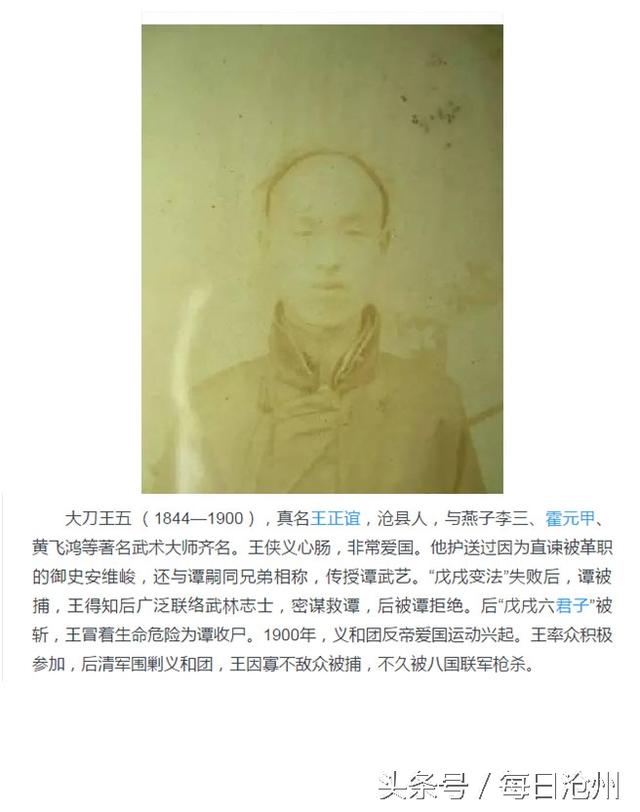 大刀王五 （1844—1900），真名王正谊，沧县人，与燕子李三、霍元甲、
黄飞鸿等著名武术大师齐名。王侠义心肠，非常爱国。他护送过因为直谏被革职
的御史安维峻，还与谭嗣同兄弟相称，传授谭武艺。“戊戌变法”失败后，谭被
捕，王得知后广泛联络武林志士，密谋救谭，后被谭拒绝。后“戊戌六君子”被
斩，王冒着生命危险为谭收尸。1900年，义和团反帝爱国运动兴起。王率众积极
参加，后清军围剿义和团，王因寡不敌众被捕，不久被八国联军枪杀。
头条号 / 每日沧州